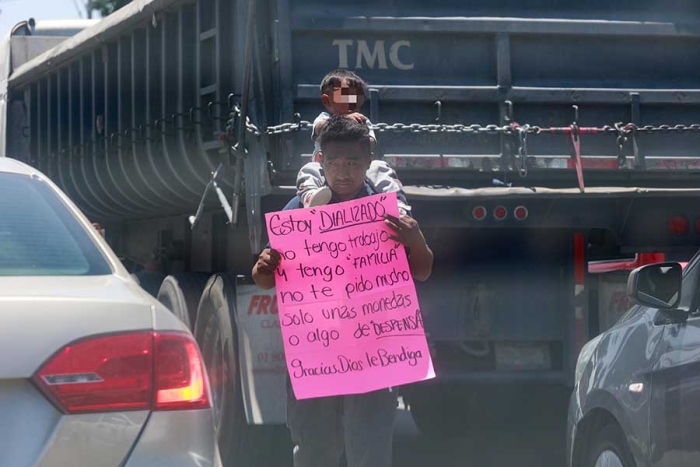 TMC
Estoy "DIALIZADO"
no tengo trabajo
y tengo "FAMILIA"
no te pido mucho
solo unas monedas
o algo de "DESPENSA"
gracias Dios le Bendiga